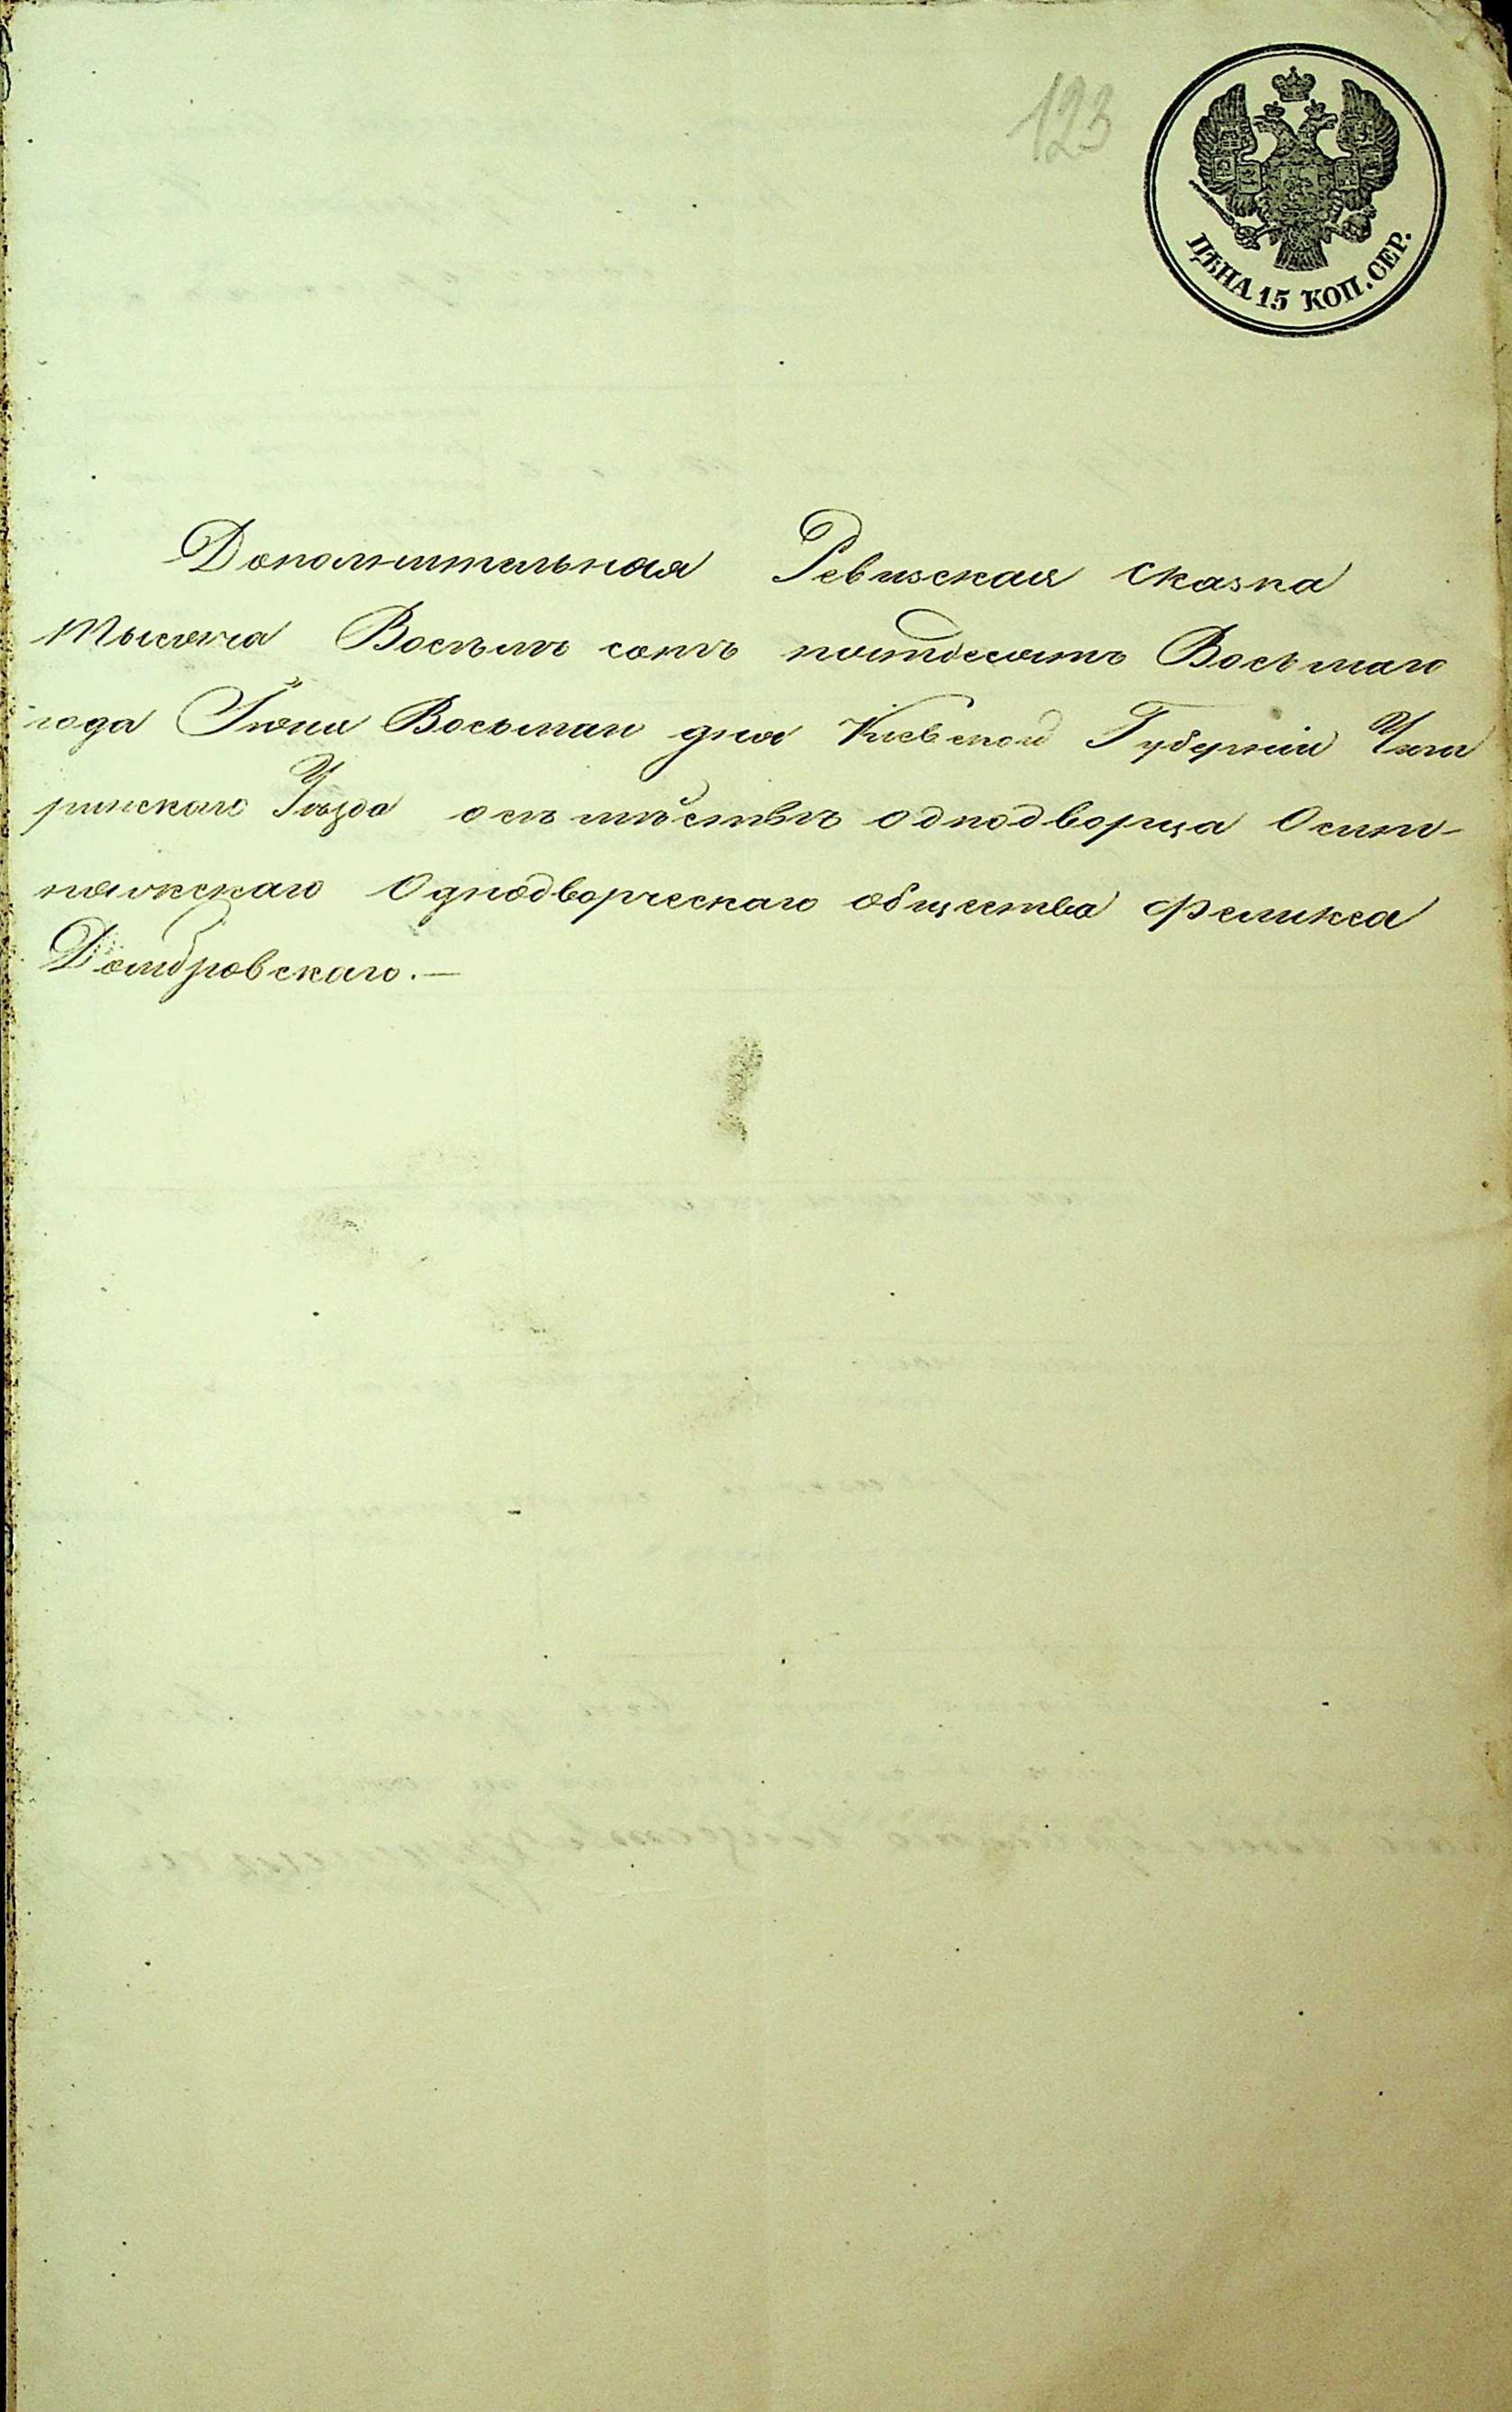 123
ЦѢНА 15 КОП. СЕР.
Дополнительная Ревизская сказка
тысяча Восѣмъ сотъ пятдесятъ Восьмаго
года Іюня Восьмаго дня Кіевской Губерніи Чиги
ринскаго Уѣзда о однодворца Осит-
няжскаго Однодворческаго общества Феликса
Домбровскаго.—